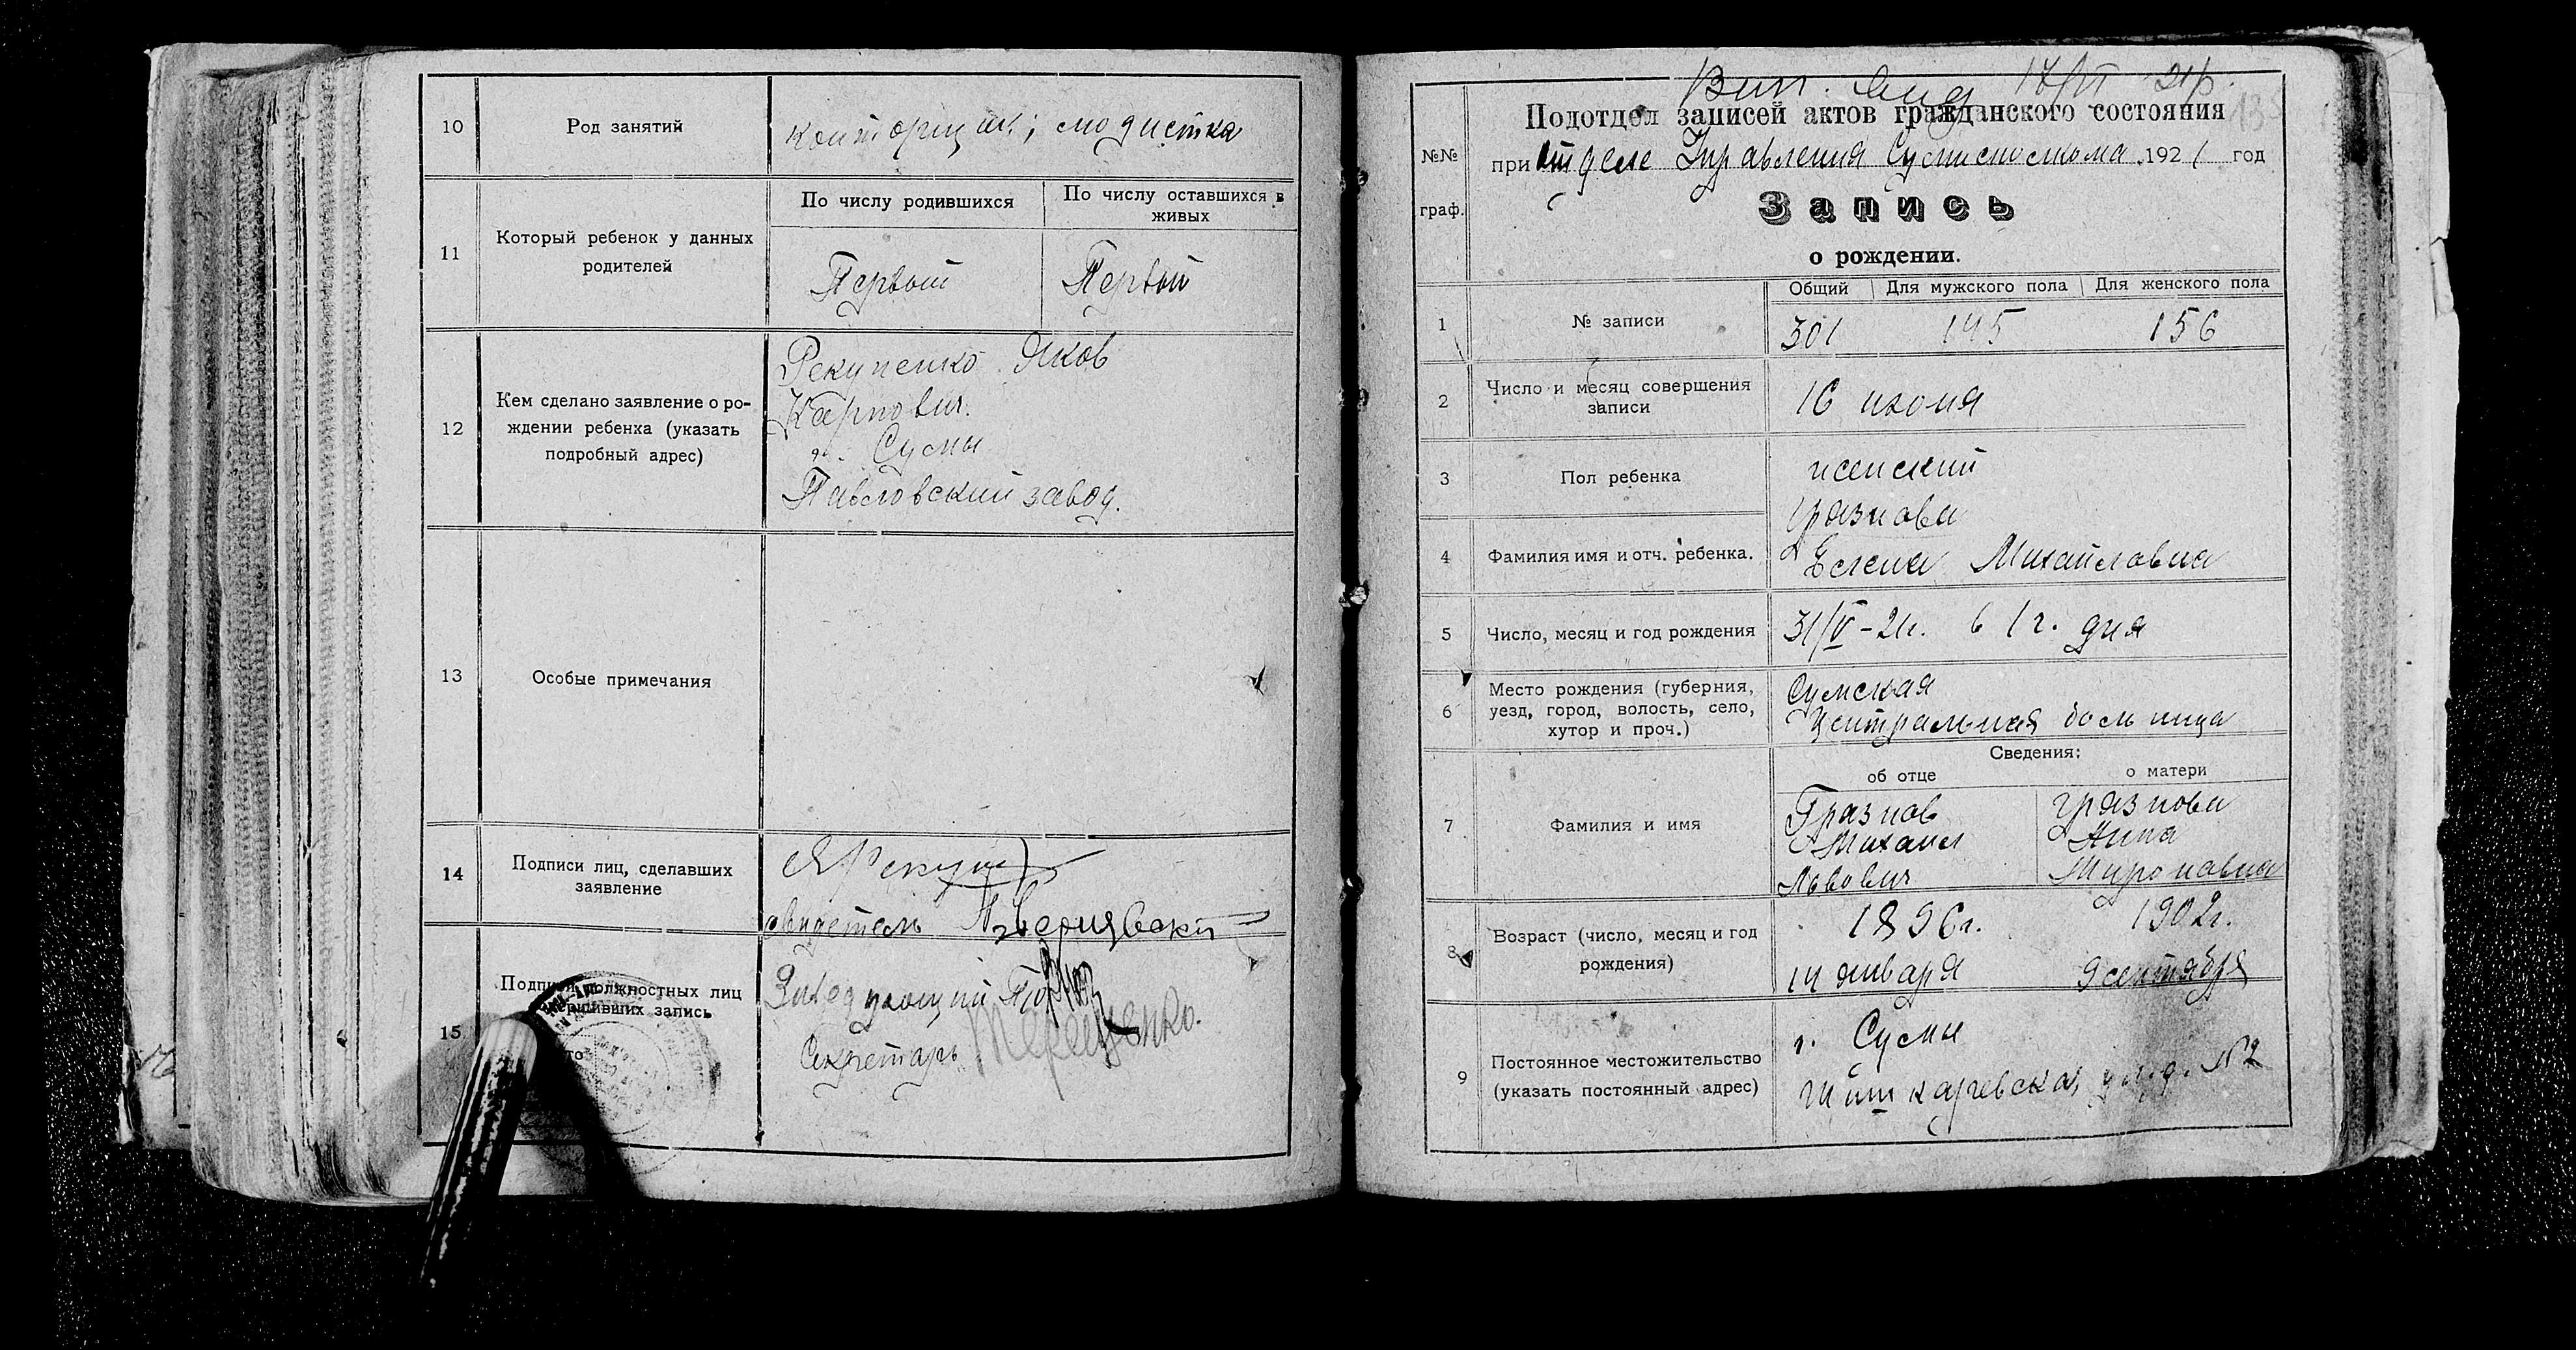 10
Род занятий
конторщик; модистка
11
Который ребенок у данных
родителей
По числу родившихся
По числу оставшихся в
живых
Первый
Первый
12
Кем сделано заявление о ро-
ждении ребенка (указать
подробный адрес)
Рекупенко Яков
Карпович.
г. Сумы
Павловский завод.
13
Особые примечания
14
Подписи лиц, сделавших
заявление
свидетель
15
Подписи должностных лиц
совершивших запись
Заведующий
Секретарь Терещенко.
Подотдел записей актов гражданского состояния
при Отделе Управления 1921 год
№№
граф.
Запись
о рождении.
Общий
Для мужского пола
Для женского пола
1
№ записи
301
145
156
2
Число и месяц совершения
записи
16 июня
3
Пол ребенка
женский
4
Фамилия имя и отч. ребенка.
Грязнова
Елена Михайловна
5
Число, месяц и год рождения
31/V-21г. в 1 г. дня
6
Место рождения (губерния,
уезд, город, волость, село,
хутор и проч.)
Сумская
Центральная больница
Сведения:
об отце
о матери
7
Фамилия и имя
Грязнов
Михаил
Львович
Грязнова
Анна
Мироновна
8
Возраст (число, месяц и год
рождения)
1896г.
14 января
1902г.
9 сентября
9
Постоянное местожительство
(указать постоянный адрес)
г. Сумы
ул. д. №2